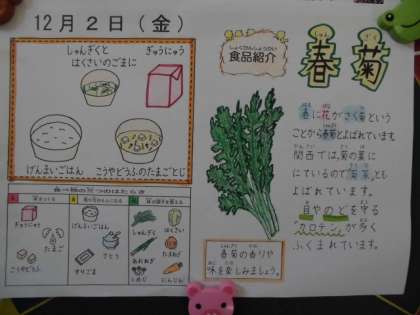 12月2日(金)
しゅんぎくと
はくさいのごまに
ぎゅうにゅう
げんまいごはん
こうやどうふのたまごとじ
ぎゅうにゅう
たまご
こうやどうふ
げんまいごはん
さとう
すりごま
しゅんぎく
はくさい
たまねぎ
あおねぎ
しめじ
にんじん
食品紹介
春菊
春に花がさく菊という
ことから春菊とよばれています。
関西では、菊の葉に
にているので菊菜とも
よばれています。
目やのどを守る
カロテンが多く
ふくまれています。
春菊の香りや
味を楽しみましょう。